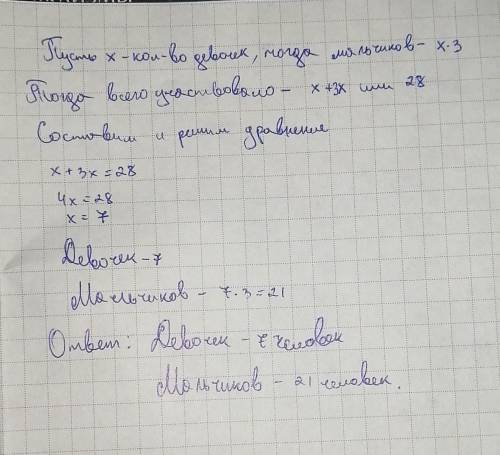 Пусть x - кол-во девочек, тогда мальчиков - x·3
Тогда всего участвовало - x+3x или 28
Составим и решим уравнение
x+3x=28
4x=28
x=7
Девочек - 7
Мальчиков - 7·3=21
Ответ: Девочек - 7 человек
Мальчиков - 21 человек.